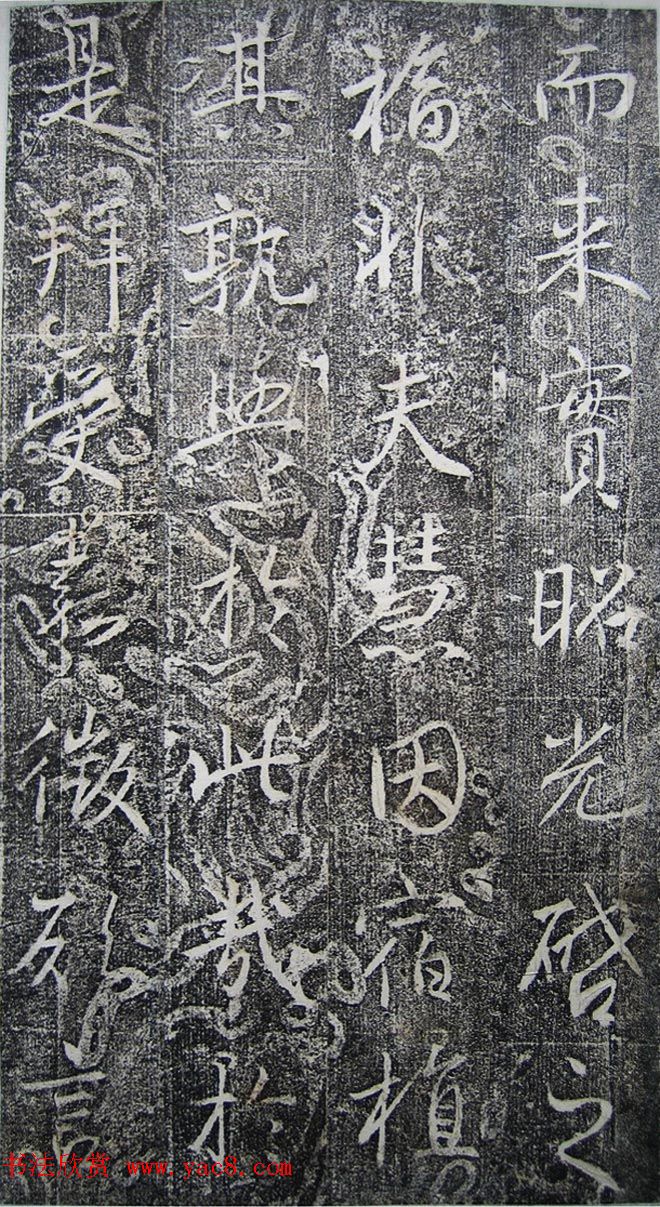 而来實昭光啓之
福非夫慧因宿植
其孰與於此哉於
是拜受嘉徵發言
书法欣赏 www.yac8.com